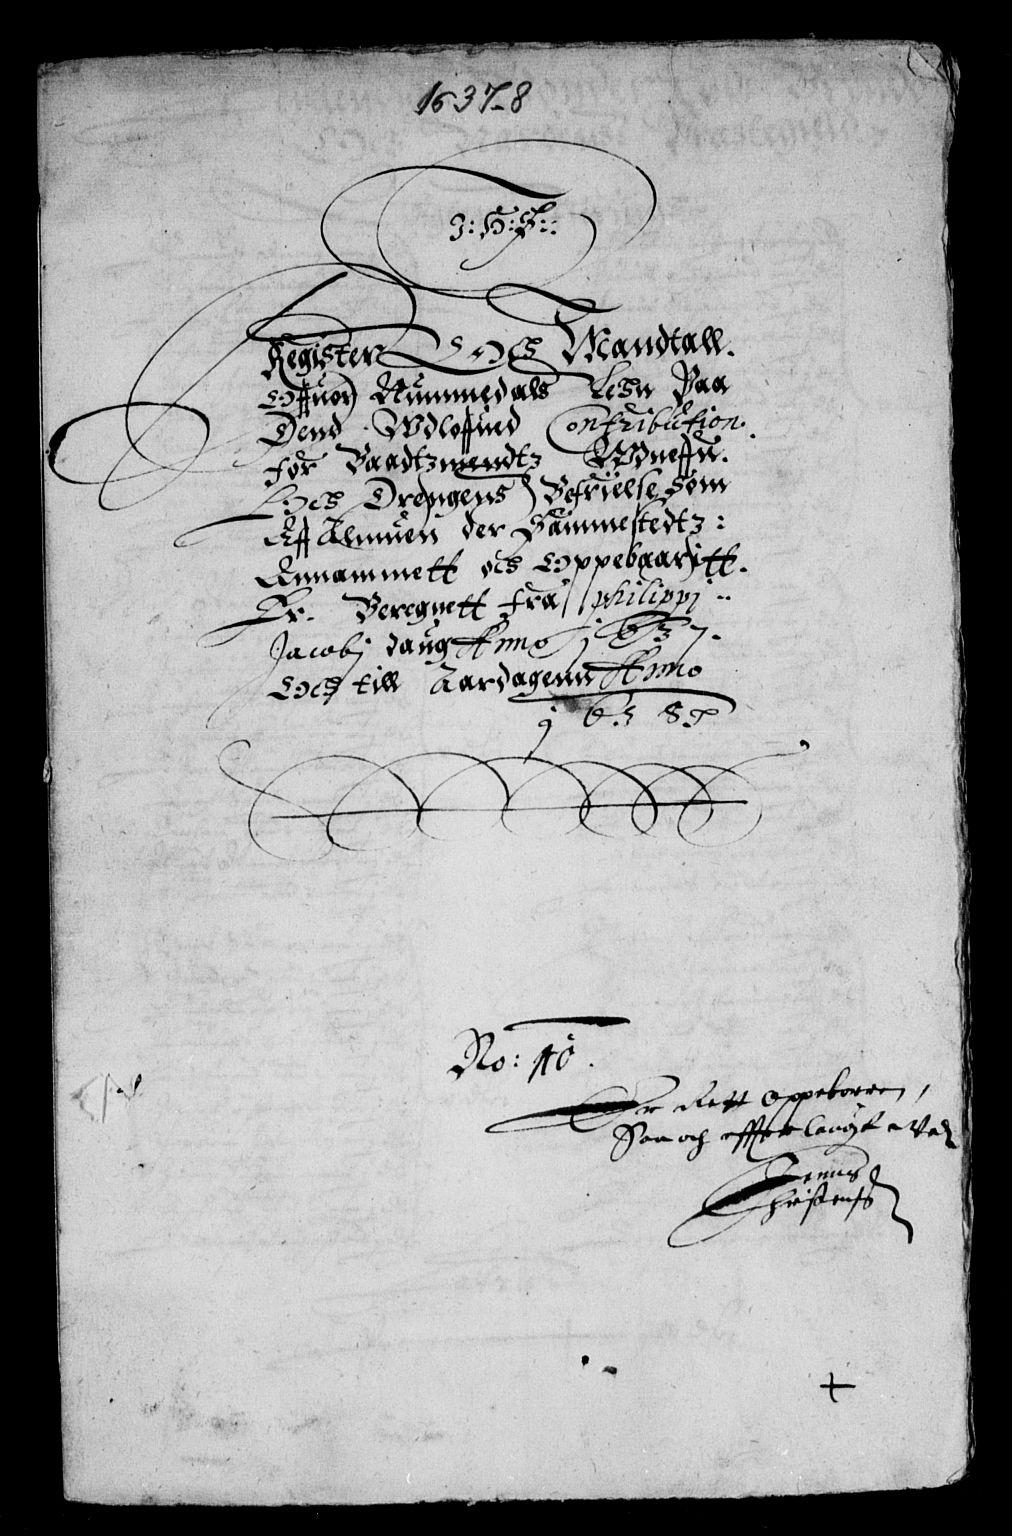 1637-8
J: H: S::
Register Och Mandtall.
Offuer Nummedals Lehn Paa
Dend Wdloffued Contribution.
for Baadtzmendtz Wdneffn.
Och Drengens Befrielse Som
Aff Almuen der Sammestedtz:
Annammett och Oppebaaritt.
Er. Beregnett fra philippj
Jacobj daug Anno j637.
och till Aardagenn Anno
j638.
No: 40.
Er Rett Oppeborren,
Saa och efter laugt
Christenss